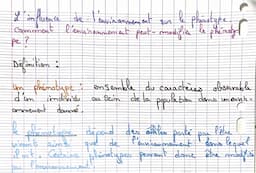 L'influence de l'environnement sur le phénotype.
Comment l'environnement peut-modifie le phénoty
pe ?
Définition :
Un phénotype : ensemble du caractères observable
d'un individu au sein de la population dans un envir-
onnement donné.
Le phénotype dépend des allèles porté par l'être
vivants ainsi que de l'environnement dans lequel
il vit. Certains phénotypes peuvent donc être modifiés
par l'environnement.